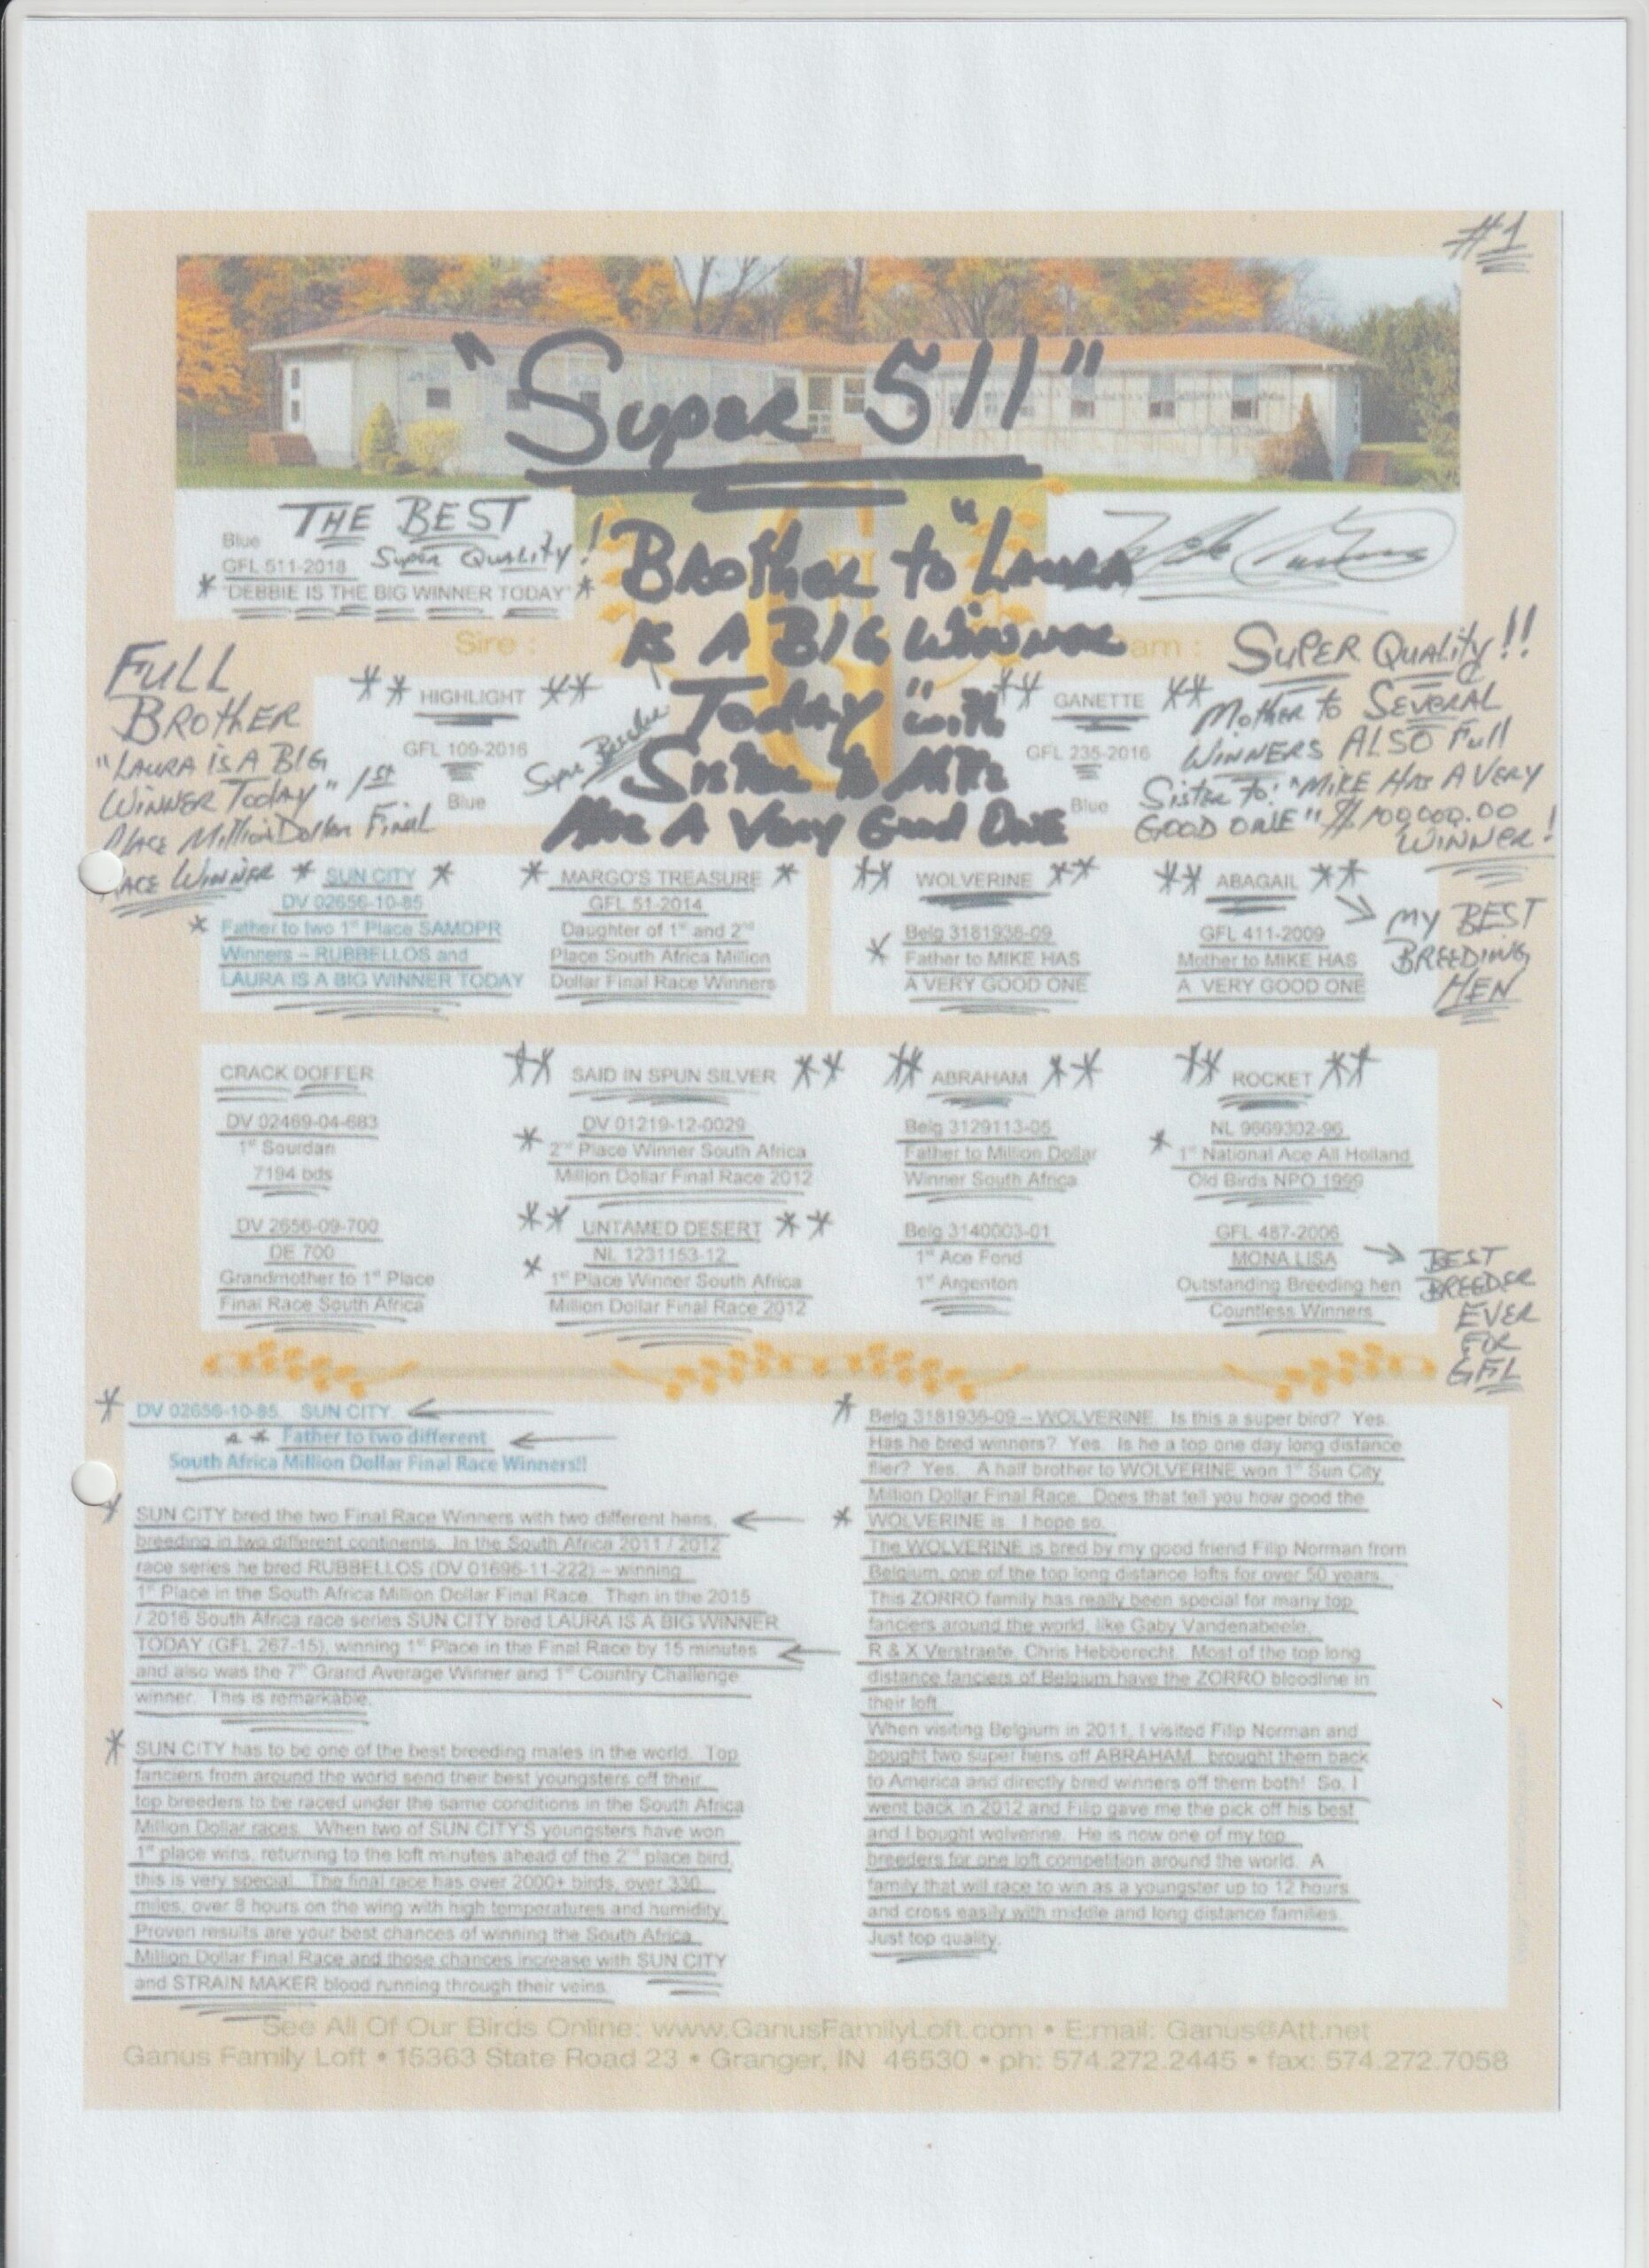 #1
"Super 511"
THE BEST
Super Quality!
Blue
GFL 511-2018
* "DEBBIE IS THE BIG WINNER TODAY" *
Brother to "Laura
is A Big Winner
Today" with
Sister to Mike
Has A Very Good One
Sire :
am :
Full
Brother
"Laura is A Big
Winner Today" 1st
Place Million Dollar Final
Race Winner
** HIGHLIGHT **
GFL 109-2016
Blue
Super Breeder
** GANETTE **
GFL 235-2016
Blue
Super Quality!!
Mother to Several
Winners Also Full
Sister to: "Mike Has A Very
Good One" $100,000.00
Winner!
* SUN CITY *
DV 02656-10-85
* Father to two 1st Place SAMDPR
Winners – RUBBELLOS and
LAURA IS A BIG WINNER TODAY
* MARGO'S TREASURE *
GFL 51-2014
Daughter of 1st and 2nd
Place South Africa Million
Dollar Final Race Winners
** WOLVERINE **
Belg 3181936-09
* Father to MIKE HAS
A VERY GOOD ONE
** ABAGAIL **
GFL 411-2009
Mother to MIKE HAS
A VERY GOOD ONE
My Best
Breeding
Hen
CRACK DOFFER
DV 02469-04-683
1st Sourdan
7194 bds
DV 2656-09-700
DE 700
Grandmother to 1st Place
Final Race South Africa
** SAID IN SPUN SILVER **
DV 01219-12-0029
* 2nd Place Winner South Africa
Million Dollar Final Race 2012
** UNTAMED DESERT **
NL 1231153-12
* 1st Place Winner South Africa
Million Dollar Final Race 2012
** ABRAHAM **
Belg 3129113-05
Father to Million Dollar
Winner South Africa
Belg 3140003-01
1st Ace Fond
1st Argenton
** ROCKET **
NL 9669302-96
* 1st National Ace All Holland
Old Birds NPO 1999
GFL 487-2006
MONA LISA
Outstanding Breeding hen
Countless Winners
Best
Breeder
Ever
For
GFL
* DV 02656-10-85 SUN CITY
** Father to two different
South Africa Million Dollar Final Race Winners!!
* SUN CITY bred the two Final Race Winners with two different hens,
breeding in two different continents. In the South Africa 2011 / 2012
race series he bred RUBBELLOS (DV 01696-11-222) – winning
1st Place in the South Africa Million Dollar Final Race. Then in the 2015
/ 2016 South Africa race series SUN CITY bred LAURA IS A BIG WINNER
TODAY (GFL 267-15), winning 1st Place in the Final Race by 15 minutes
and also was the 7th Grand Average Winner and 1st Country Challenge
winner. This is remarkable.
* SUN CITY has to be one of the best breeding males in the world. Top
fanciers from around the world send their best youngsters off their
top breeders to be raced under the same conditions in the South Africa
Million Dollar races. When two of SUN CITY'S youngsters have won
1st place wins, returning to the loft minutes ahead of the 2nd place bird,
this is very special. The final race has over 2000+ birds, over 330
miles, over 8 hours on the wing with high temperatures and humidity.
Proven results are your best chances of winning the South Africa
Million Dollar Final Race and those chances increase with SUN CITY
and STRAIN MAKER blood running through their veins.
* Belg 3181936-09 – WOLVERINE. Is this a super bird? Yes.
Has he bred winners? Yes. Is he a top one day long distance
flier? Yes. A half brother to WOLVERINE won 1st Sun City
Million Dollar Final Race. Does that tell you how good the
* WOLVERINE is. I hope so.
The WOLVERINE is bred by my good friend Filip Norman from
Belgium, one of the top long distance lofts for over 50 years.
This ZORRO family has really been special for many top
fanciers around the world, like Gaby Vandenabeele,
R & X Verstraete, Chris Hebberecht. Most of the top long
distance fanciers of Belgium have the ZORRO bloodline in
their loft.
When visiting Belgium in 2011, I visited Filip Norman and
bought two super hens off ABRAHAM, brought them back
to America and directly bred winners off them both! So, I
went back in 2012 and Filip gave me the pick off his best
and I bought wolverine. He is now one of my top
breeders for one loft competition around the world. A
family that will race to win as a youngster up to 12 hours
and cross easily with middle and long distance families.
Just top quality.
See All Of Our Birds Online: www.GanusFamilyLoft.com • E:mail: Ganus@Att.net
Ganus Family Loft • 15363 State Road 23 • Granger, IN 46530 • ph: 574.272.2445 • fax: 574.272.7058